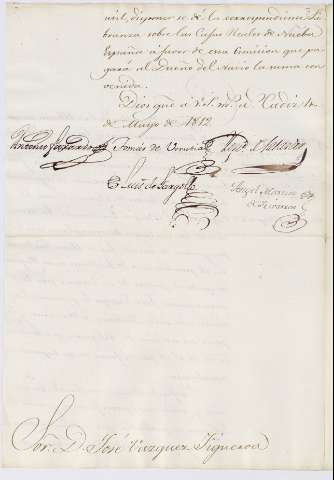 dispone se de la correspondiente Li
branza sobre las Cajas Reales de Nueba
España a favor de esa Comision que pa
gará al Dueño del Navio la suma con
venida.
Dios gue. a V.S. ms. as. Cadiz
de Mayo de 1812
Antonio Tomás de Urrutia
Luis de Gargollo
Angel Martin
de Iribarren
Sor. D. José Vazquez Figueroa